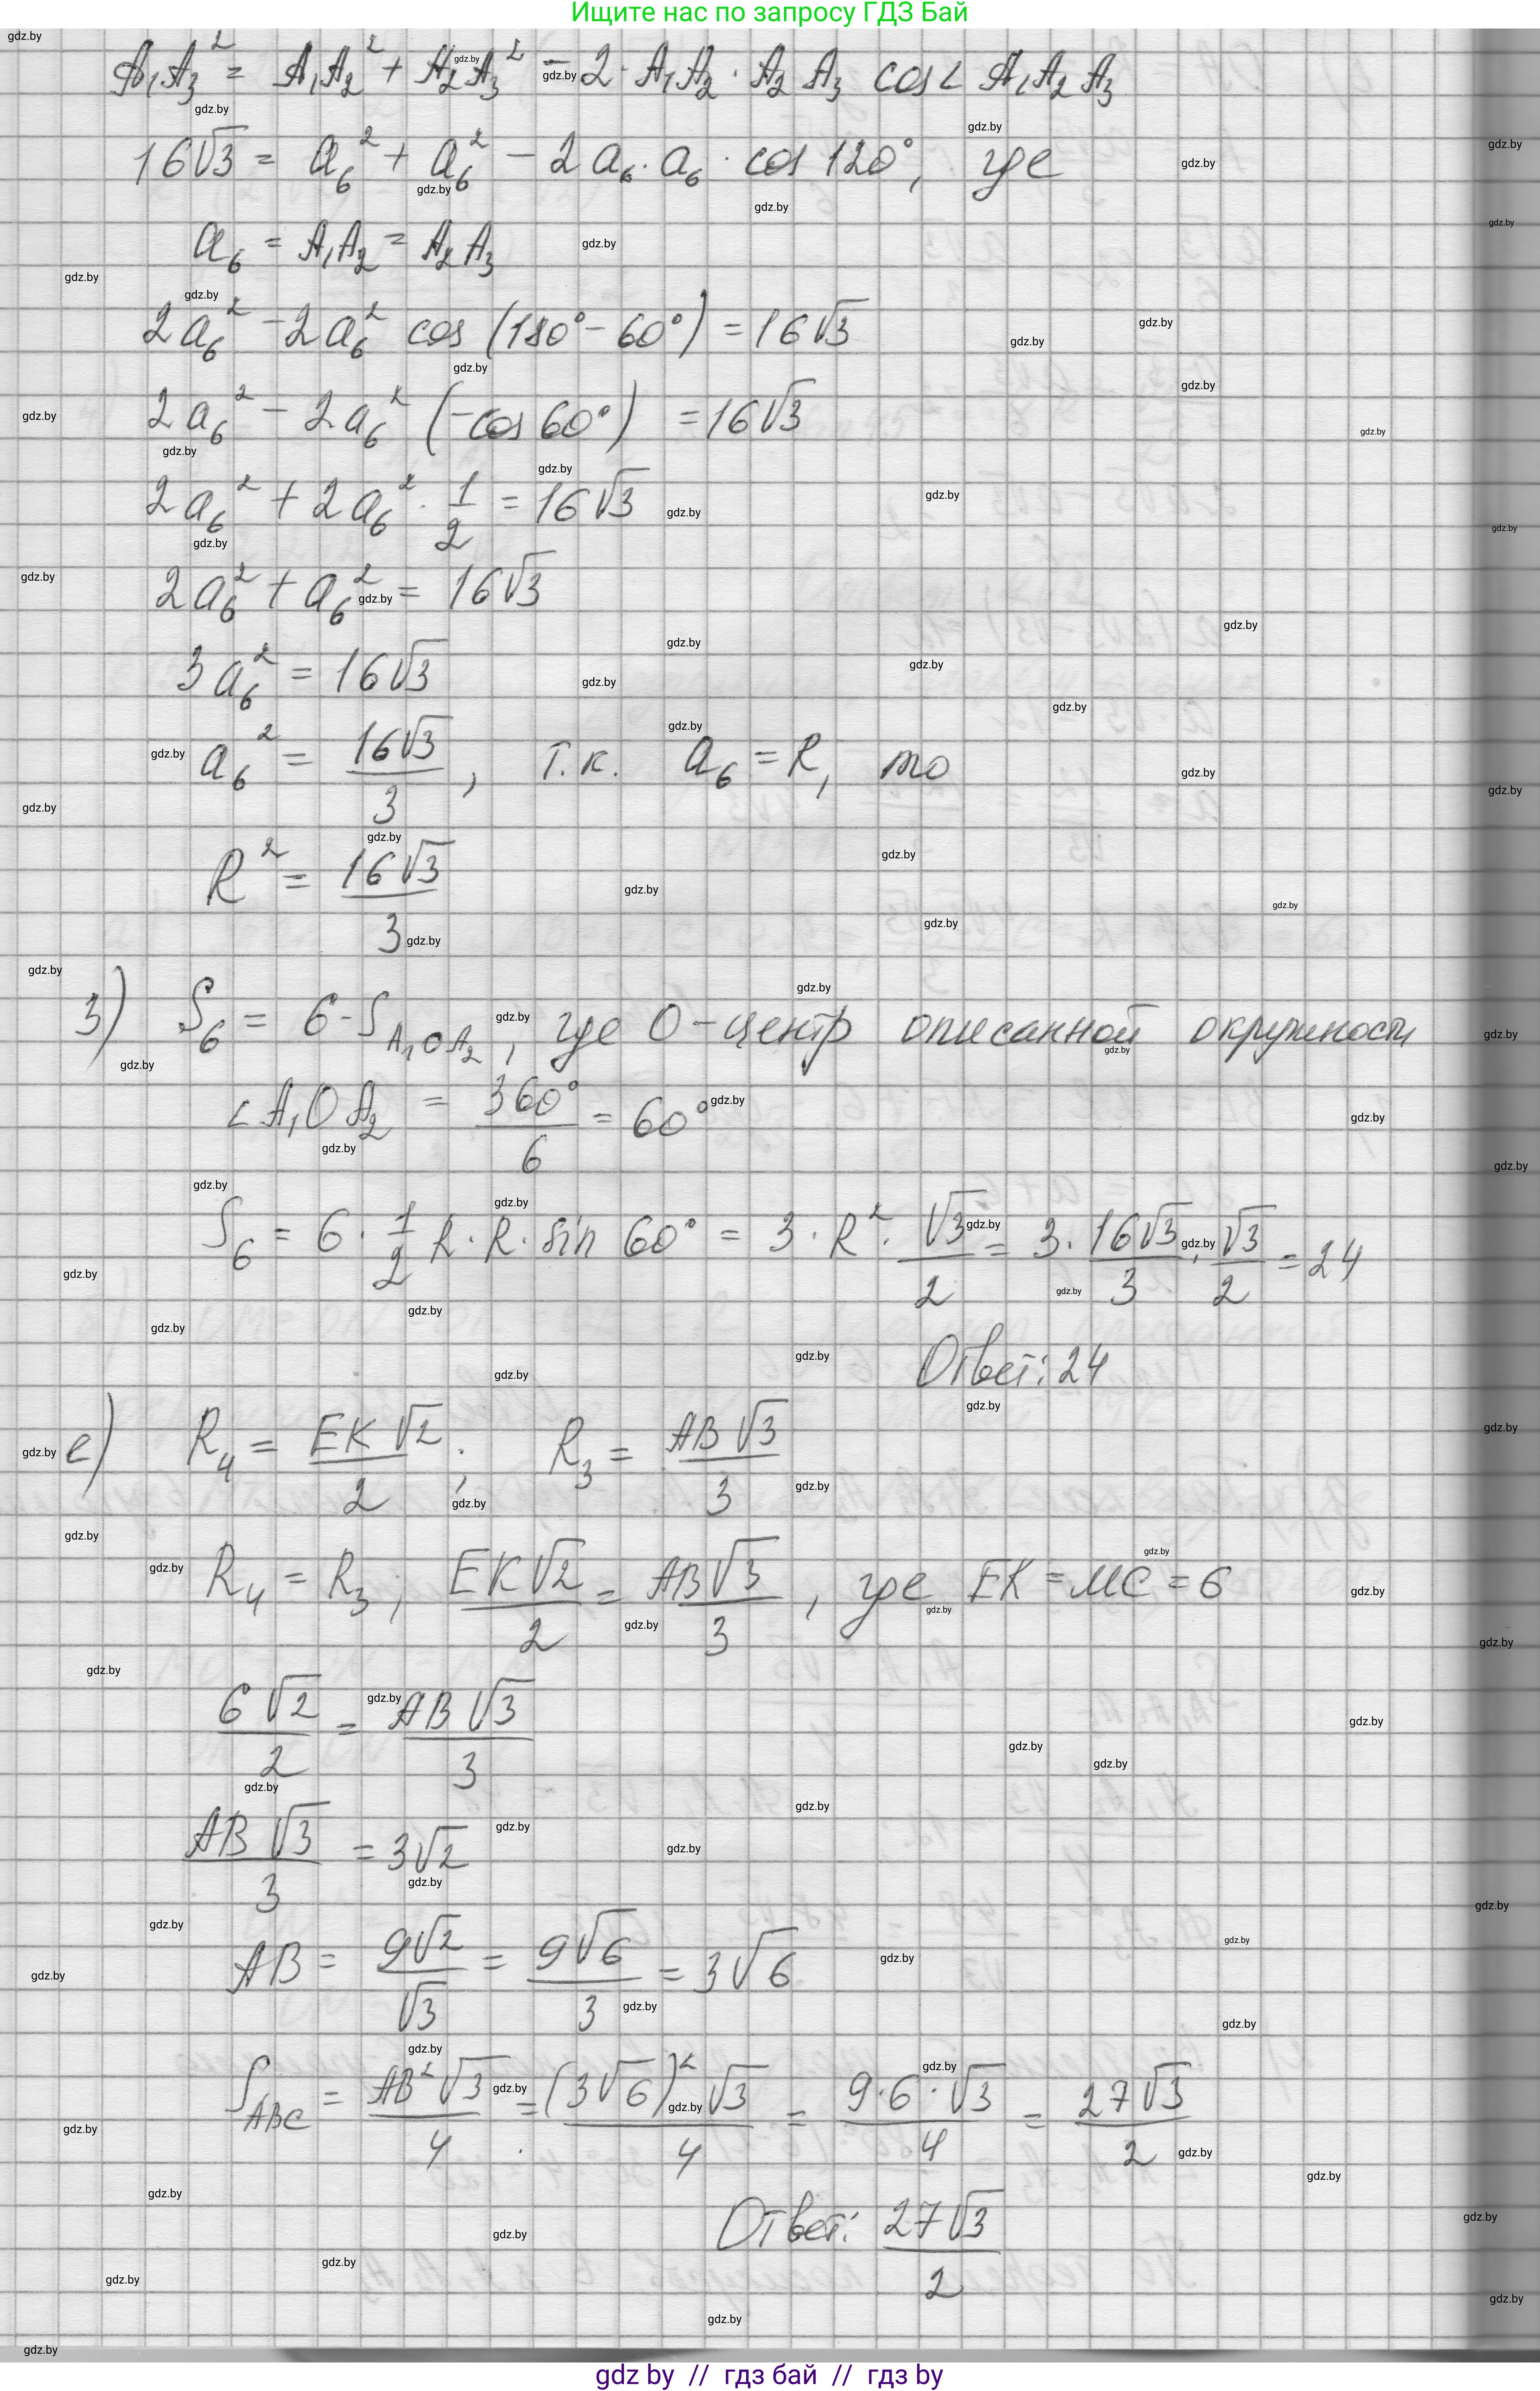 Ищите нас по запросу ГДЗ Бай
A₁A₃² = A₁A₂² + A₂A₃² - 2·A₁A₂·A₂A₃ cos∠A₁A₂A₃
16√3 = a₆² + a₆² - 2a₆·a₆·cos 120°, где
a₆ = A₁A₂ = A₂A₃
2a₆² - 2a₆² cos(180° - 60°) = 16√3
2a₆² - 2a₆² (-cos 60°) = 16√3
2a₆² + 2a₆² · 1/2 = 16√3
2a₆² + a₆² = 16√3
3a₆² = 16√3
a₆² = 16√3/3, т.к. a₆ = R, то
R² = 16√3/3
3) S₆ = 6·S_A₁OA₂, где O - центр описанной окружности
∠A₁OA₂ = 360°/6 = 60°
S₆ = 6·1/2 R·R·sin 60° = 3·R²·√3/2 = 3·16√3/3·√3/2 = 24
Ответ: 24
е) R₄ = EK√2/2; R₃ = AB√3/3
R₄ = R₃; EK√2/2 = AB√3/3, где EK = MC = 6
6√2/2 = AB√3/3
AB√3/3 = 3√2
AB = 9√2/√3 = 9√6/3 = 3√6
S_ABC = AB²√3/4 = (3√6)²·√3/4 = 9·6·√3/4 = 27√3/2
Ответ: 27√3/2
gdz by // гдз бай // гдз by